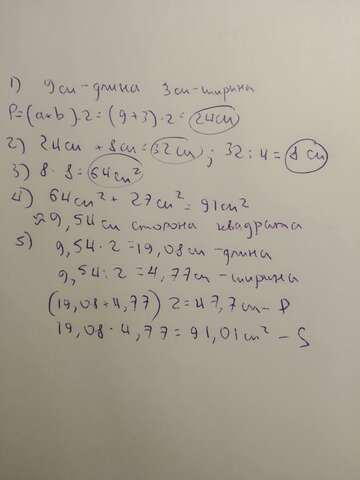 1) 9см - длина 3см - ширина
P=(a+b)·2=(9+3)·2=24см
2) 24см + 8см = 32см; 32:4=8см
3) 8·8=64см²
4) 64см² + 27см² = 91см²
≈ 9,54см сторона квадрата
5) 9,54·2=19,08см - длина
9,54:2=4,77см - ширина
(19,08+4,77) 2=47,7см - P
19,08·4,77=91,01см² - S